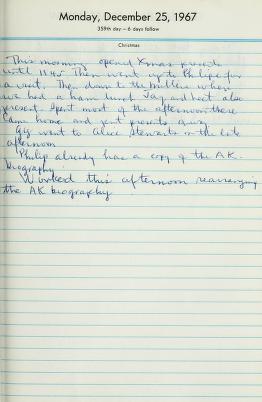 Monday, December 25, 1967
359th day — 6 days follow
Christmas
This morning opened Xmas presents
until 1145 Then went up to Philips for
a visit. Then down to the Millers where
we had a ham lunch Jay and
present. Spent most of the afternoon there
Came home and presents away
went to Alice Stewarts in the late
afternoon
Philip already has a copy of the AK.
biography
Worked this afternoon rearranging
the AK biography